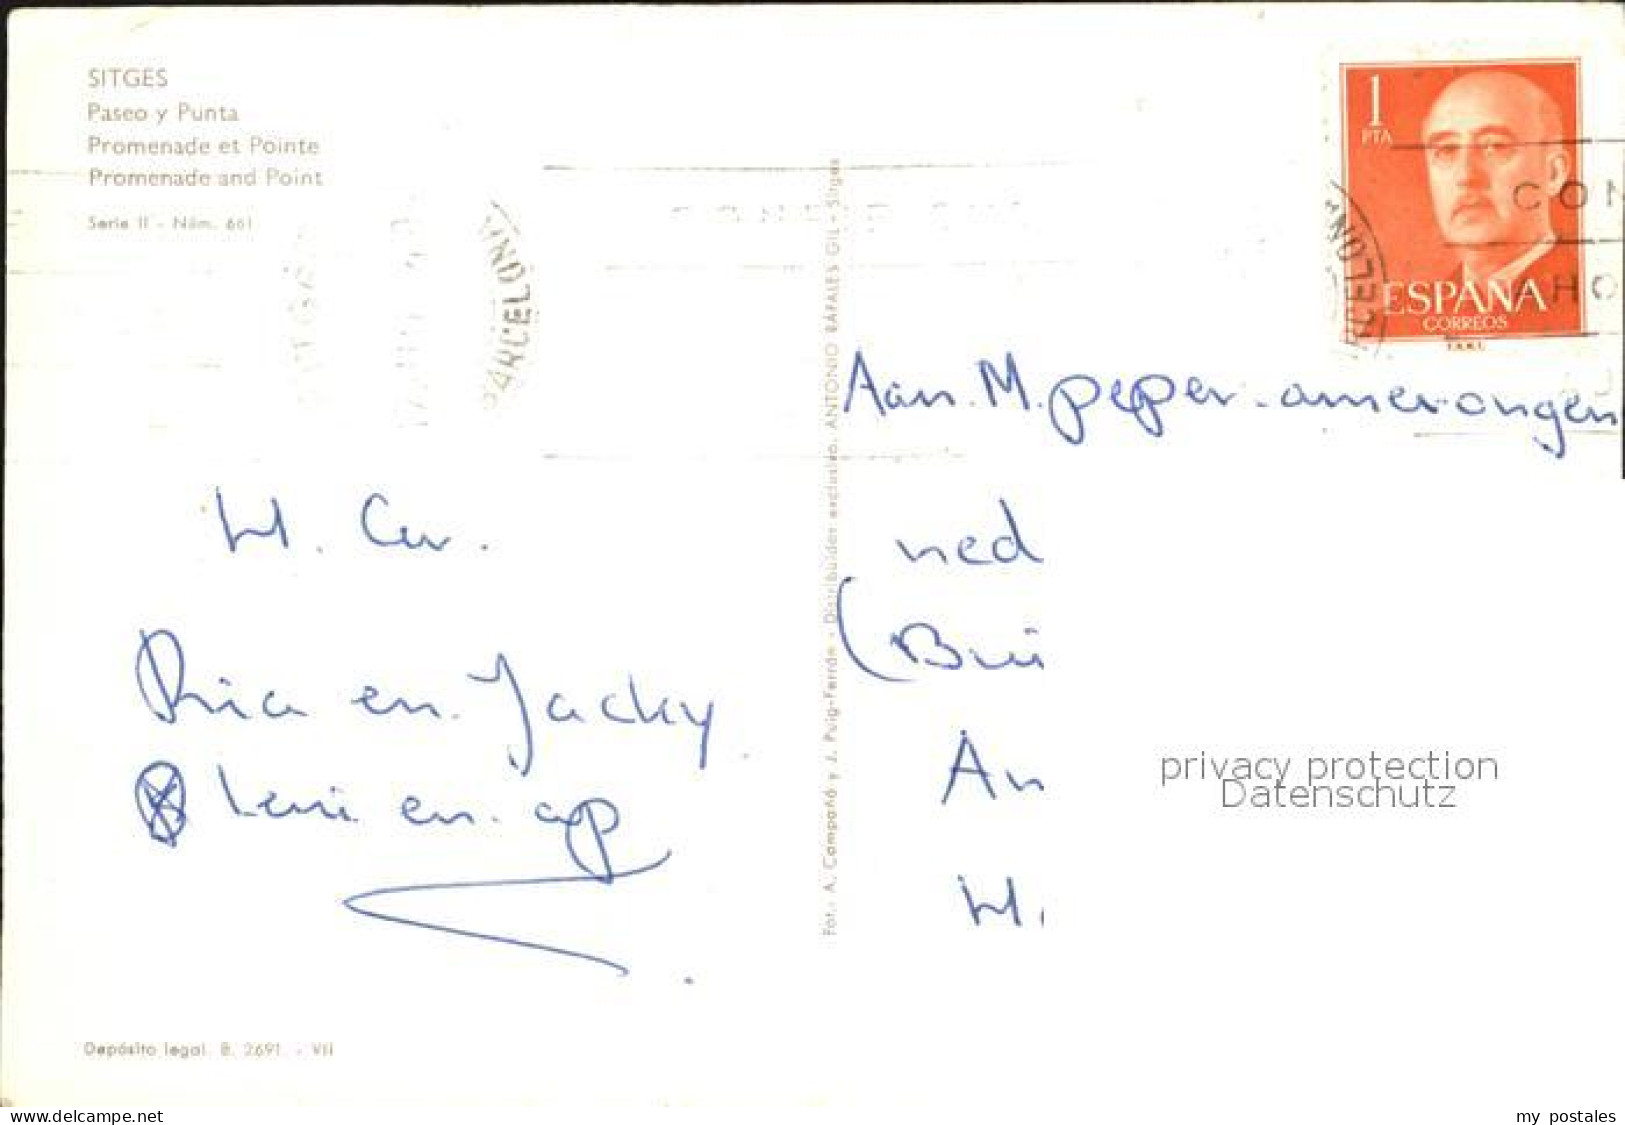 SITGES
Paseo y Punta
Promenade et Pointe
Promenade and Point
Serie II - Núm. 661
BARCELONA
1
PTA
CON
AHO
BARCELONA
ESPAÑA
CORREOS
F.N.M.T.
Fot.: A. Campañá y J. Puig-Ferrán - Distribuidor exclusivo. ANTONIO RAFALES GIL - Sitges
Aan. M. peper. amerongen
H. Gr.
ned
(Bui
Ria en. Jacky
An
Leni en. op
H.
privacy protection
Datenschutz
Depósito legal. B. 2691. - VII
www.delcampe.net
my_postales